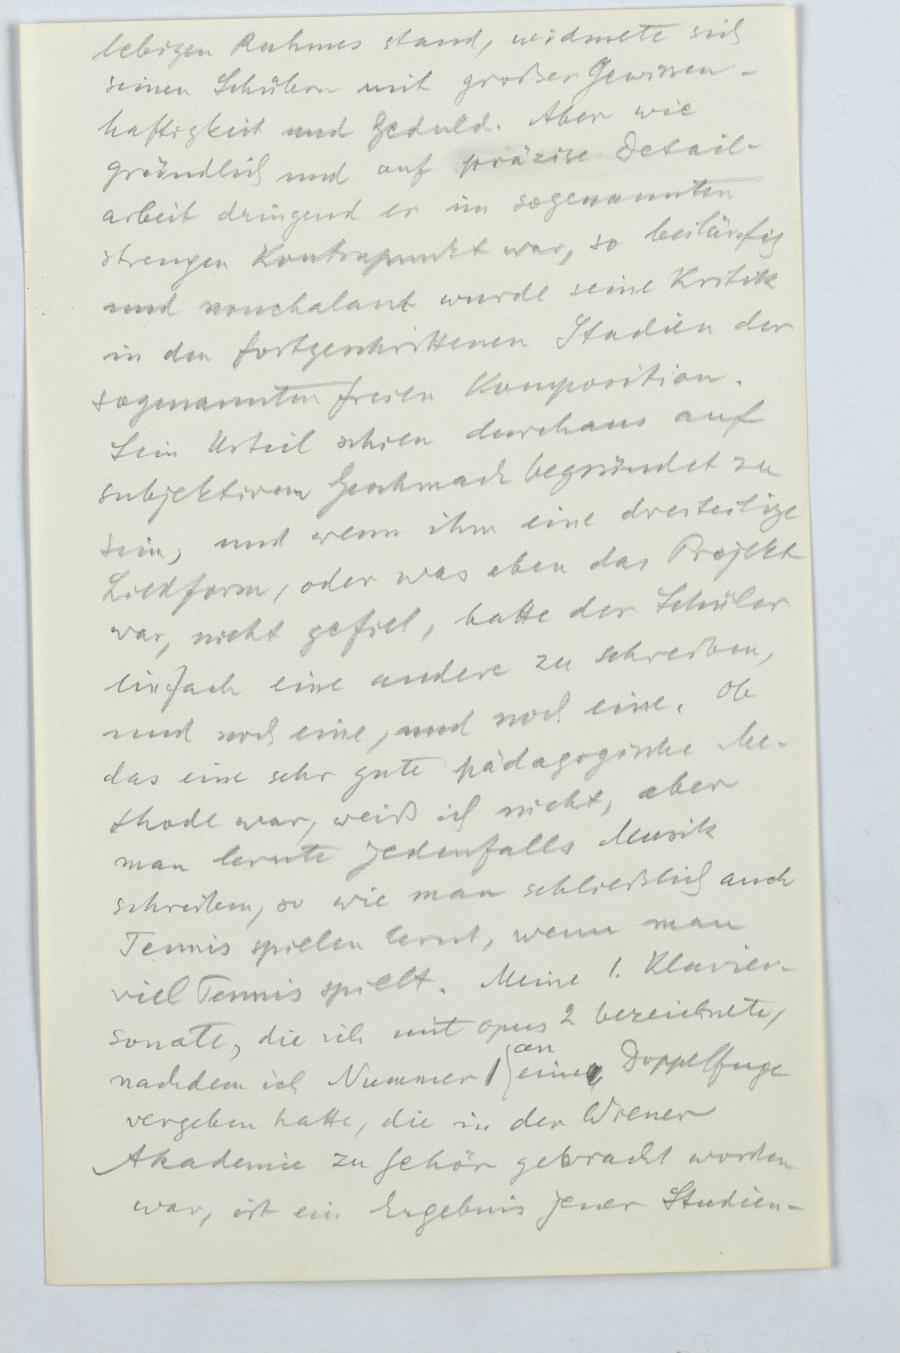 lebigen Ruhmes stand, widmete sich
seinen Schülern mit großer Gewissen-
haftigkeit und Geduld. Aber wie
gründlich und auf präzise Detail-
arbeit dringend er im sogenannten
strengen Kontrapunkt war, so beiläufig
und nonchalant wurde seine Kritik
in den fortgeschrittenen Studien der
sogenannten freien Komposition.
Sein Urteil schien durchaus auf
subjektivem Geschmack begründet zu
sein, und wenn ihm eine dreiteilige
Liedform, oder was eben das Projekt
war, nicht gefiel, hatte der Schüler
einfach eine andere zu schreiben,
und noch eine, und noch eine. Ob
das eine sehr gute pädagogische Me-
thode war, weiß ich nicht, aber
man lernte jedenfalls Musik
schreiben, so wie man schließlich auch
Tennis spielen lernt, wenn man
viel Tennis spielt. Meine 1. Klavier-
sonate, die ich mit opus 2 bezeichnete,
nachdem ich Nummer 1 an eine Doppelfuge
vergeben hatte, die in der Wiener
Akademie zu Gehör gebracht worden
war, ist ein Ergebnis jener Studien-